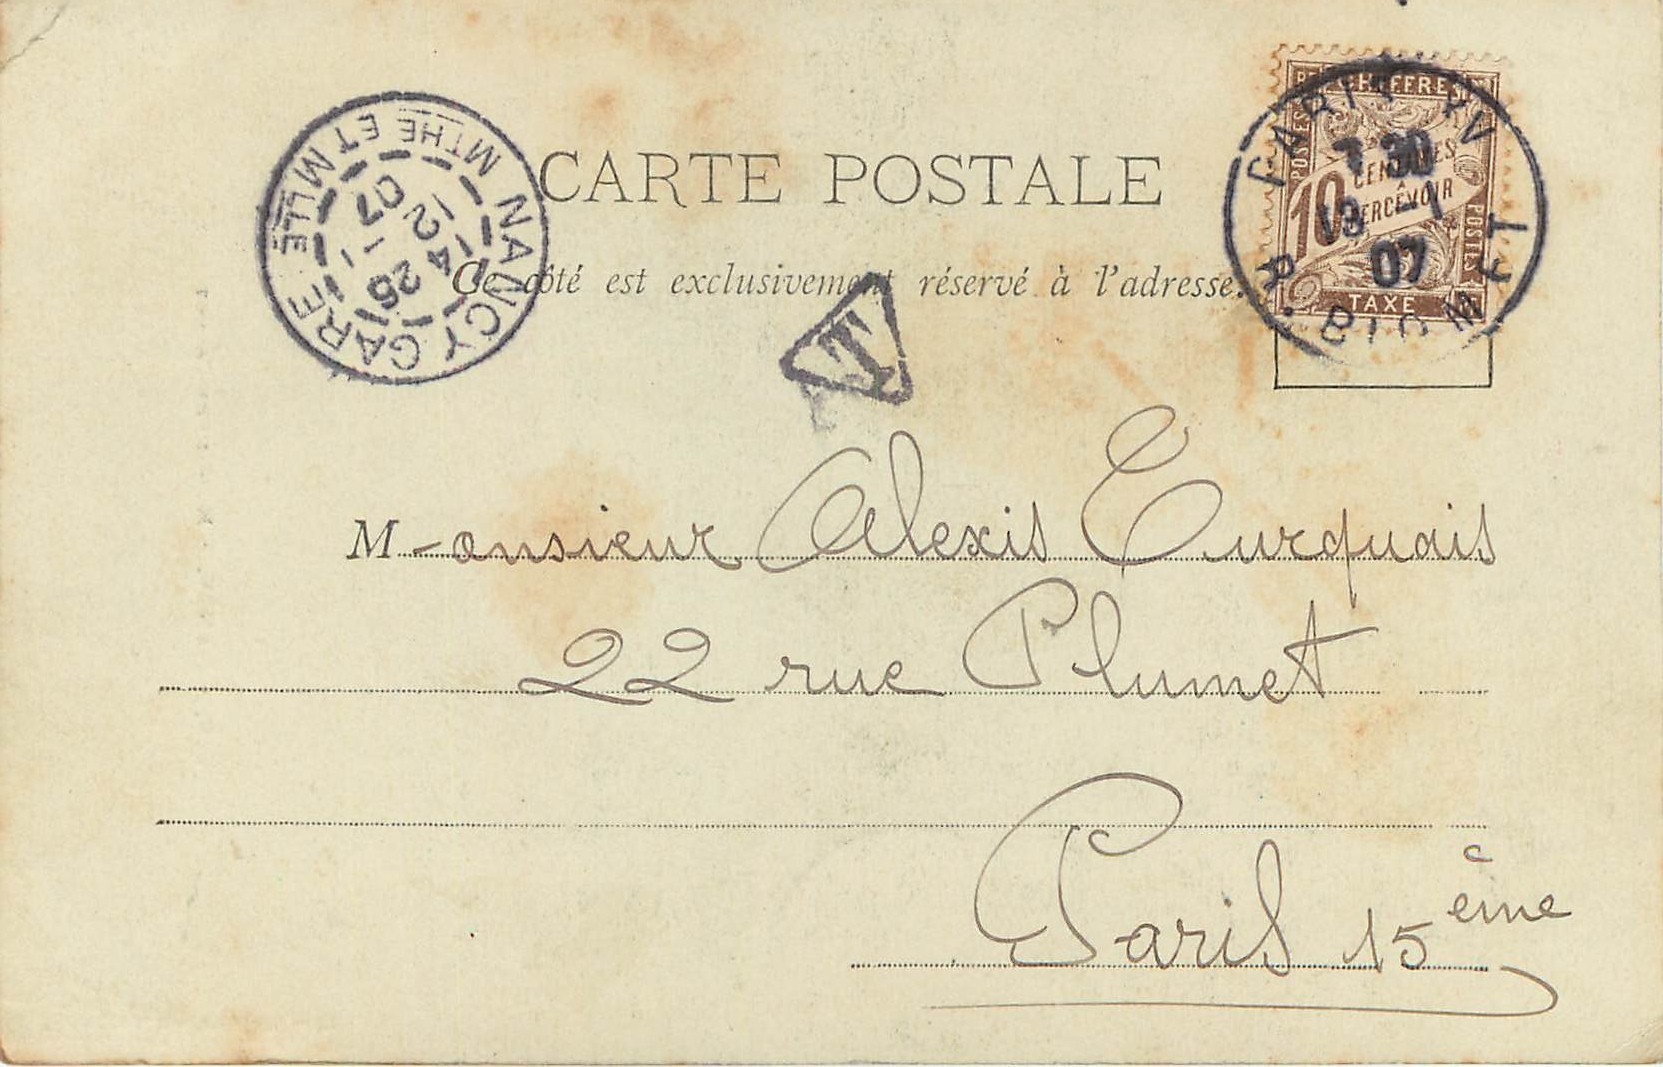 NANCY GARE
MTHE ET MLLE
14 25
12 -1
07
CARTE POSTALE
Ce côté est exclusivement réservé à l'adresse.
T
CHIFFRE
POSTES
10
CENTIMES
À
PERCEVOIR
POSTES
TAXE
7 30
13 -1
07
Monsieur Alexis Turquais
22 rue Plumet
Paris 15ème